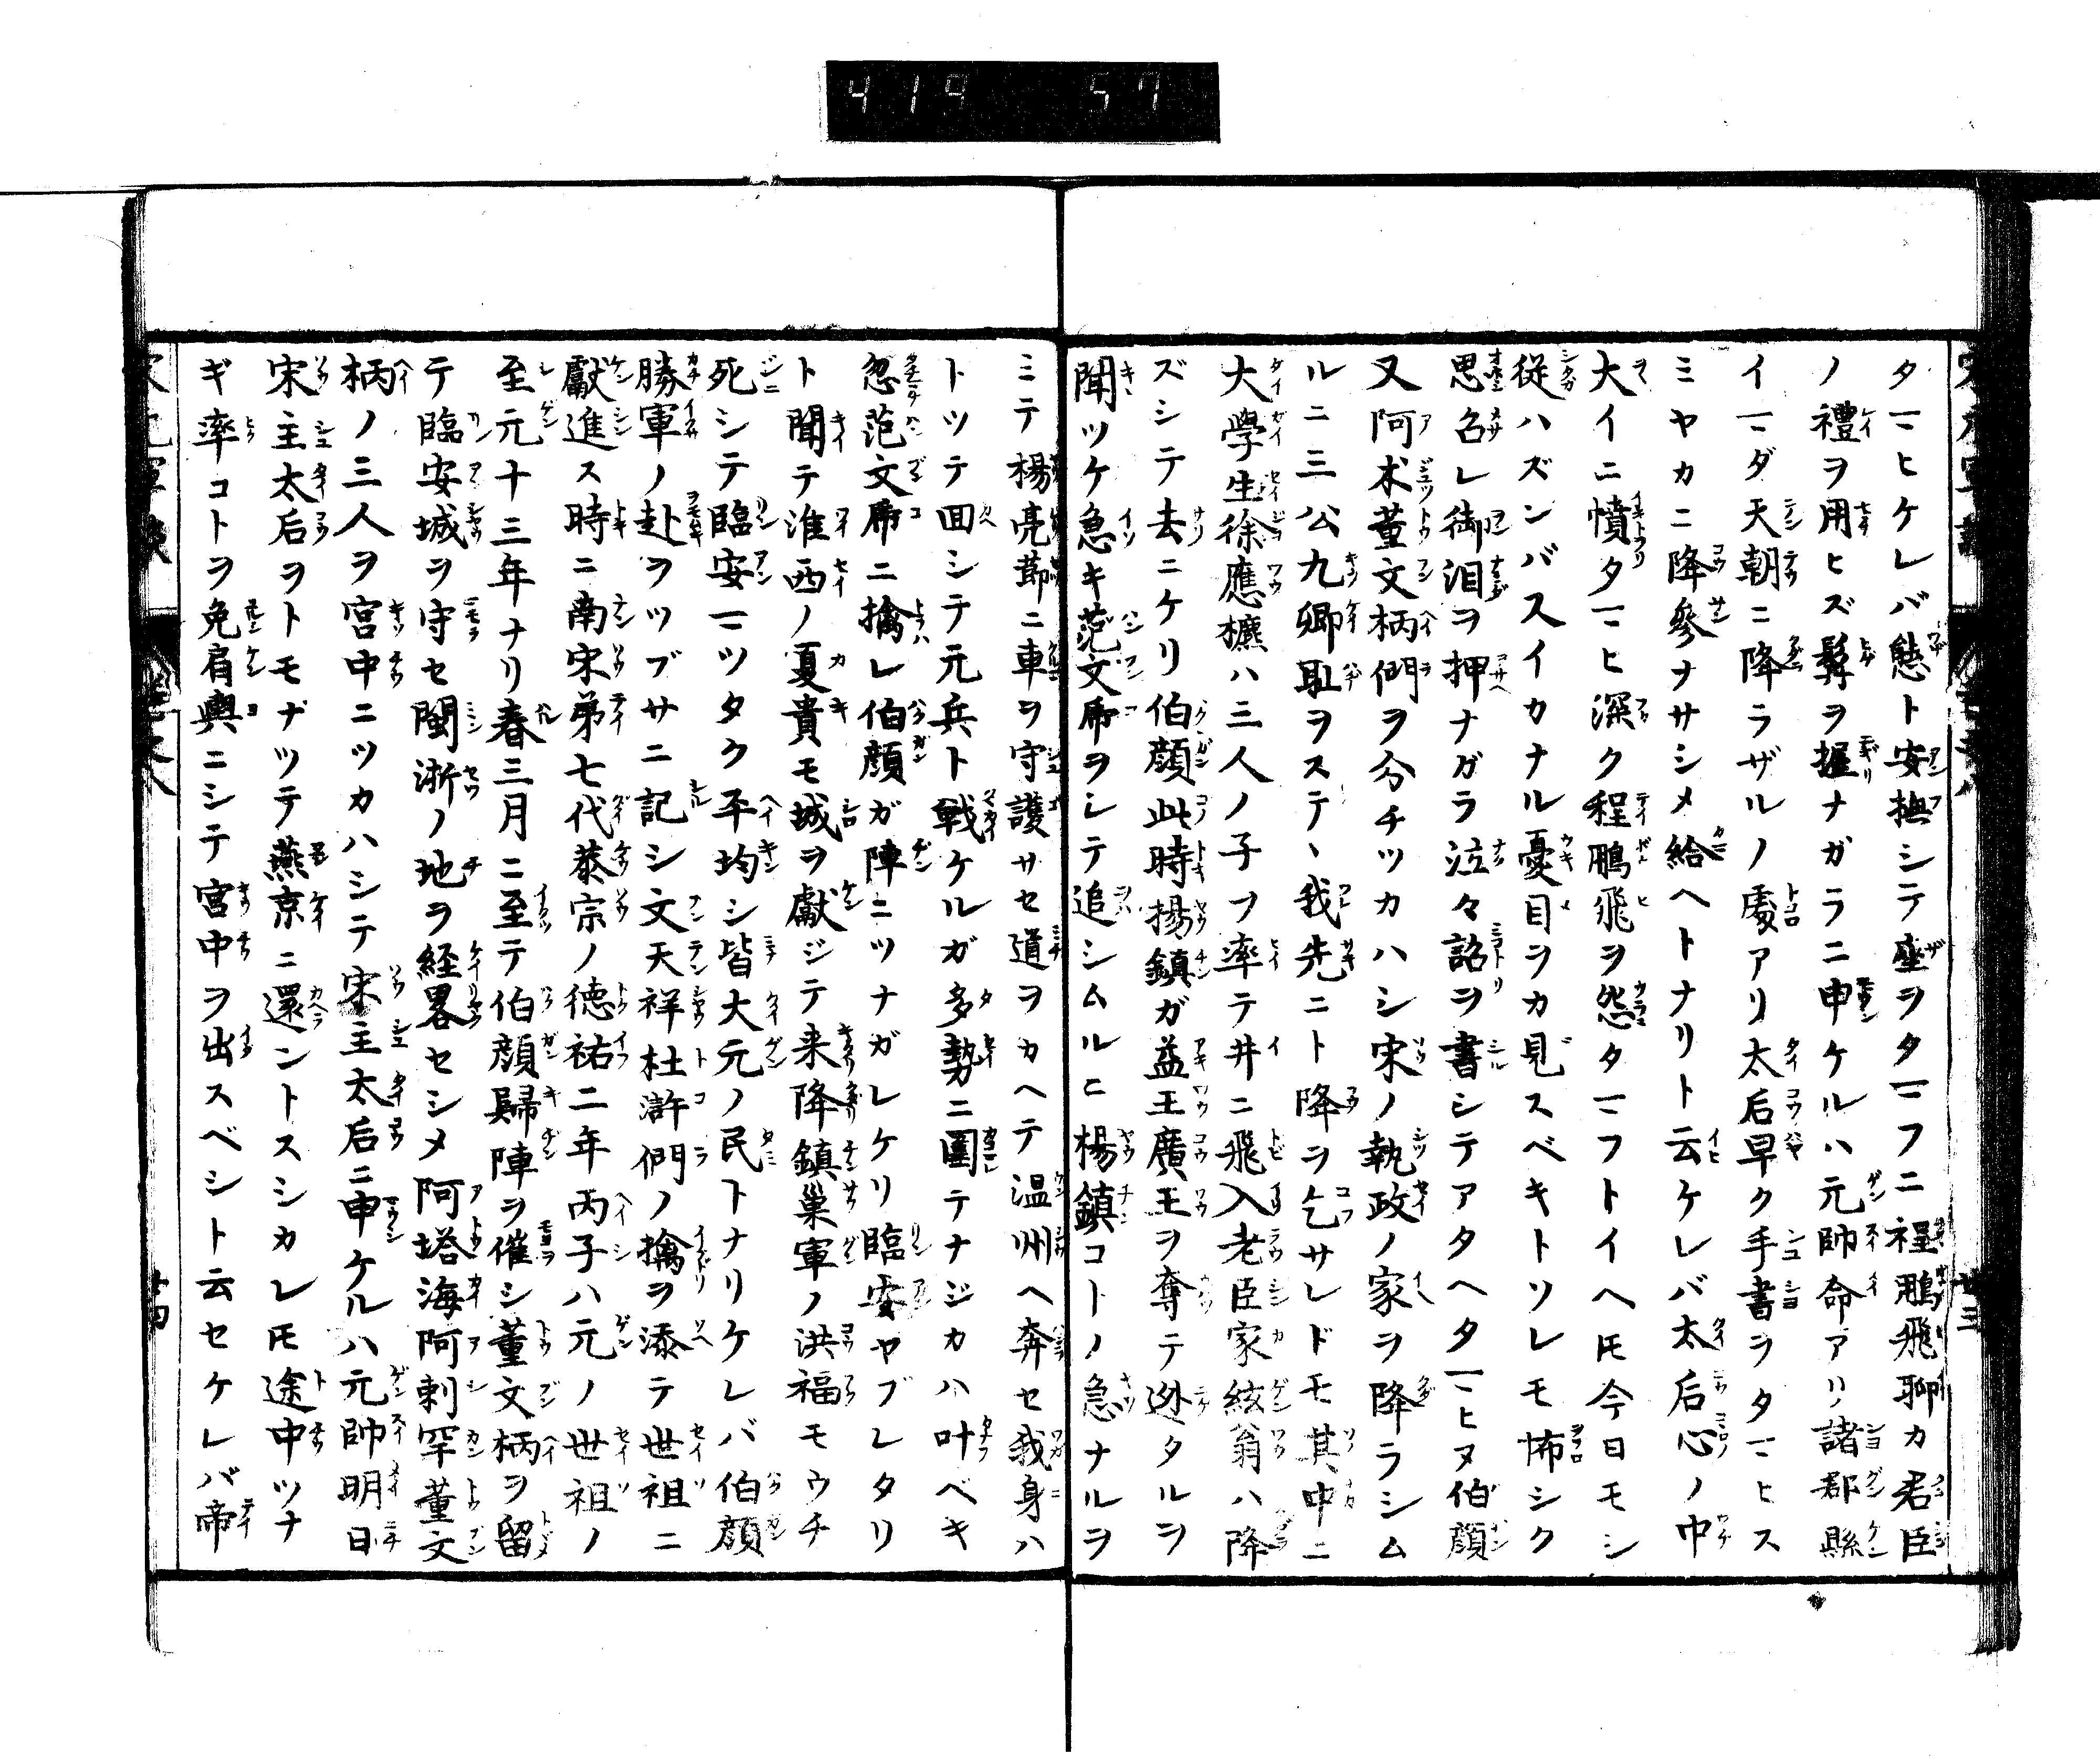 419 57
タマヒケレバ態ト安撫シテ座ヲタマフニ程鵬飛聊カ君臣
ノ禮ヲ用ヒズ髯ヲ握ナガラニ申ケルハ元帥命アリ諸郡縣
イマダ天朝ニ降ラザルノ處アリ太后早ク手書ヲタマヒス
ミヤカニ降參ナサシメ給ヘトナリト云ケレバ太后心ノ中
大イニ憤タマヒ深ク程鵬飛ヲ怨タマフトイヘ𪜈今日モシ
従ハズンバスイカナル憂目ヲカ見スベキトソレモ怖シク
思召レ御泪ヲ押ナガラ泣々詔ヲ書シテアタヘタマヒヌ伯顔
又阿朮董文柄們ヲ分チツカハシ宋ノ執政ノ家ヲ降ラシム
ルニ三公九卿耻ヲステヽ我先ニト降ヲ乞サレドモ其中ニ
大學生徐應ハ三人ノ子ヲ率テ井ニ飛入老臣家鉉翁ハ降
ズシテ去ニケリ伯顔此時揚鎮ガ益王廣王ヲ奪テ迯タルヲ
聞ツケ急キ范文席ヲシテ追シムルニ楊鎮コトノ急ナルヲ
ミテ楊亮節ニ車ヲ守護サセ道ヲカヘテ温州ヘ奔セ我身ハ
トツテ回シテ元兵ト戦ケルガ多勢ニ圍テナジカハ叶ベキ
忽范文席ニ擒レ伯顔ガ陣ニツナガレケリ臨安ヤブレタリ
ト聞テ淮西ノ夏貴モ城ヲ獻ジテ来降鎮巢軍ノ洪福モウチ
死シテ臨安マツタク平均シ皆大元ノ民トナリケレバ伯顔
勝軍ノ赴ヲツブサニ記シ文天祥杜滸們ノ擒ヲ添テ世祖ニ
獻進ス時ニ南宋第七代恭宗ノ徳祐二年丙子ハ元ノ世祖ノ
至元十三年ナリ春三月ニ至テ伯顔歸陣ヲ催シ董文柄ヲ留
テ臨安城ヲ守セ閩浙ノ地ヲ経畧セシメ阿塔海阿剌罕董文
柄ノ三人ヲ宮中ニツカハシテ宋主太后ニ申ケルハ元帥明日
宋主太后ヲトモナツテ燕京ニ還ントスシカレ𪜈途中ツナ
ギ率コトヲ免肩輿ニシテ宮中ヲ出スベシト云セケレバ帝